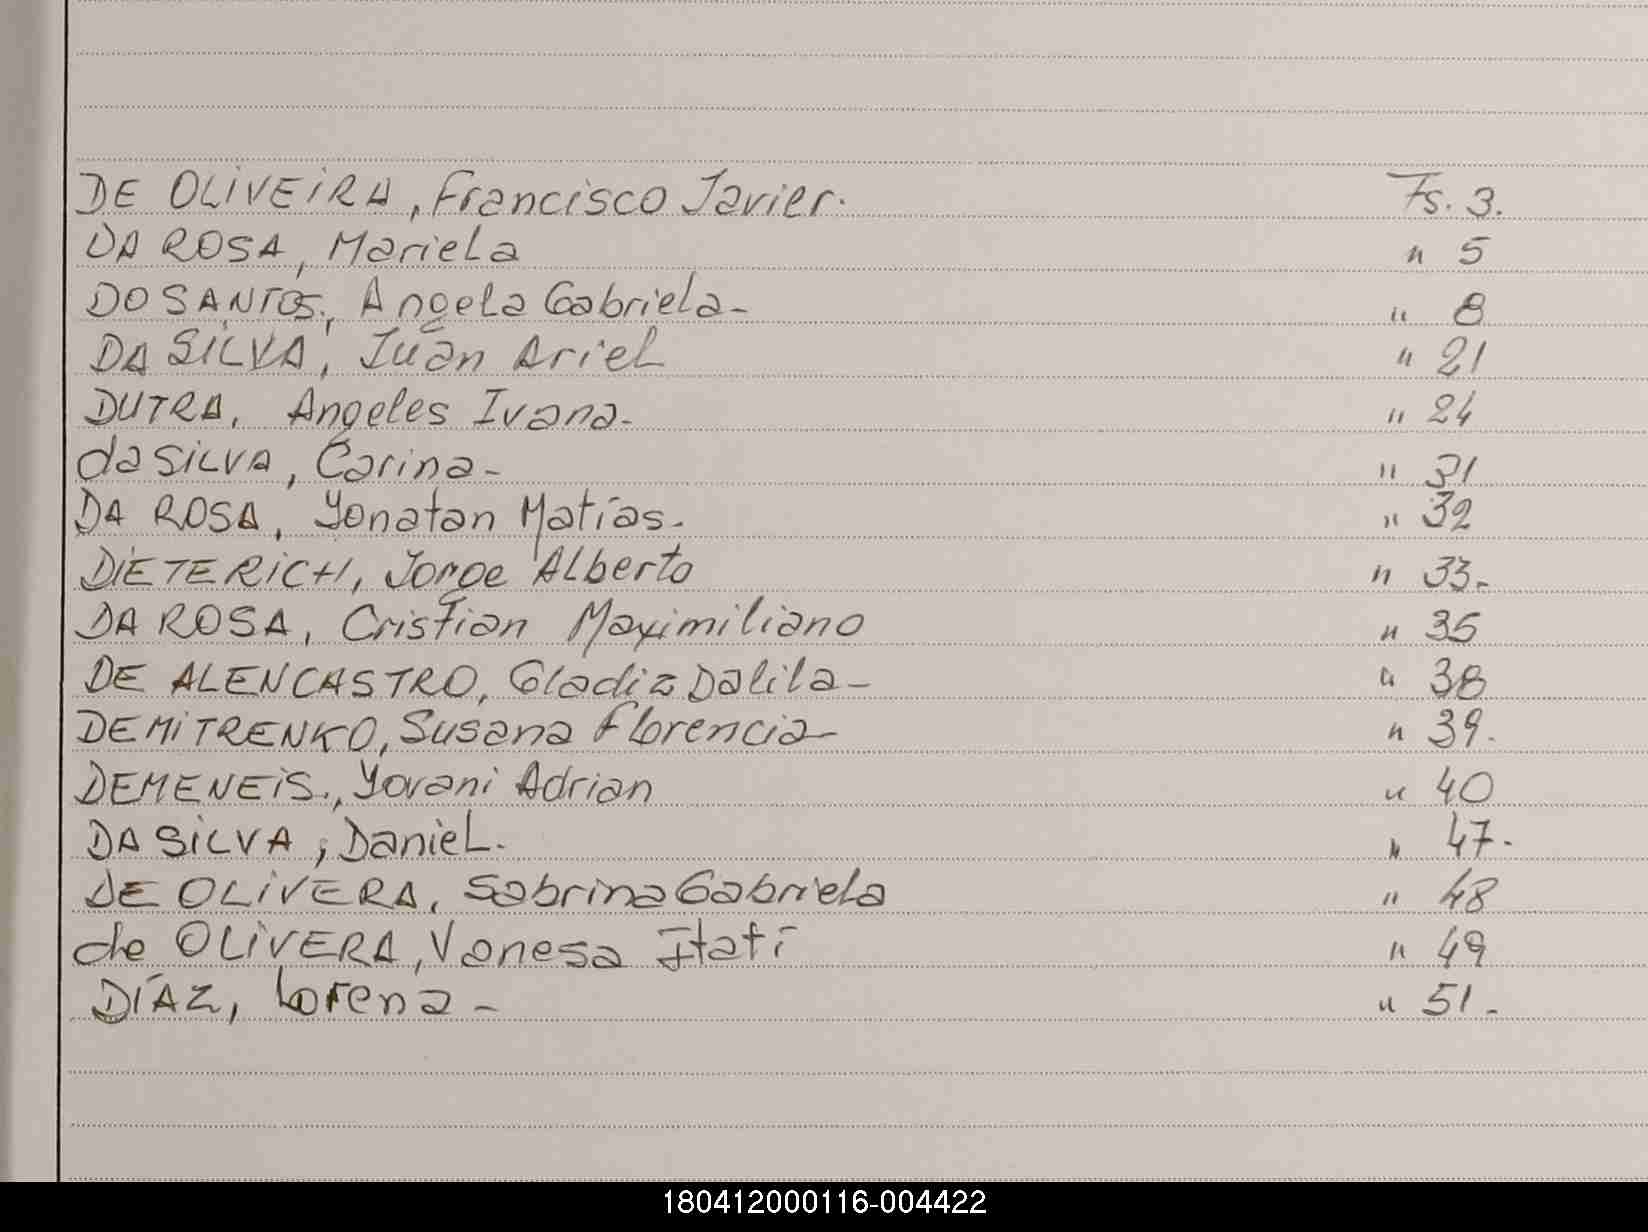 DE OLIVEIRA, Francisco Javier. Fs. 3.
DA ROSA, Mariela " 5
DOSANTOS., Angela Gabriela- " 8
DA SILVA, Iuán Ariel " 21
DUTRA, Angeles Ivana- " 24
da SILVA, Carina- " 31
DA ROSA, Yonatan Matías. " 32
DIETERICH, Jorge Alberto " 33-
DA ROSA, Cristian Maximiliano " 35
DE ALENCASTRO, Gladiz Dalila- " 38
DEMITRENKO, Susana Florencia- " 39.
DEMENEIS., Yovani Adrian " 40
DA SILVA, Daniel. " 47.
DE OLIVERA, Sabrina Gabriela " 48
de OLIVERA, Vanesa Itatí " 49
DÍAZ, Lorena - " 51.
180412000116-004422